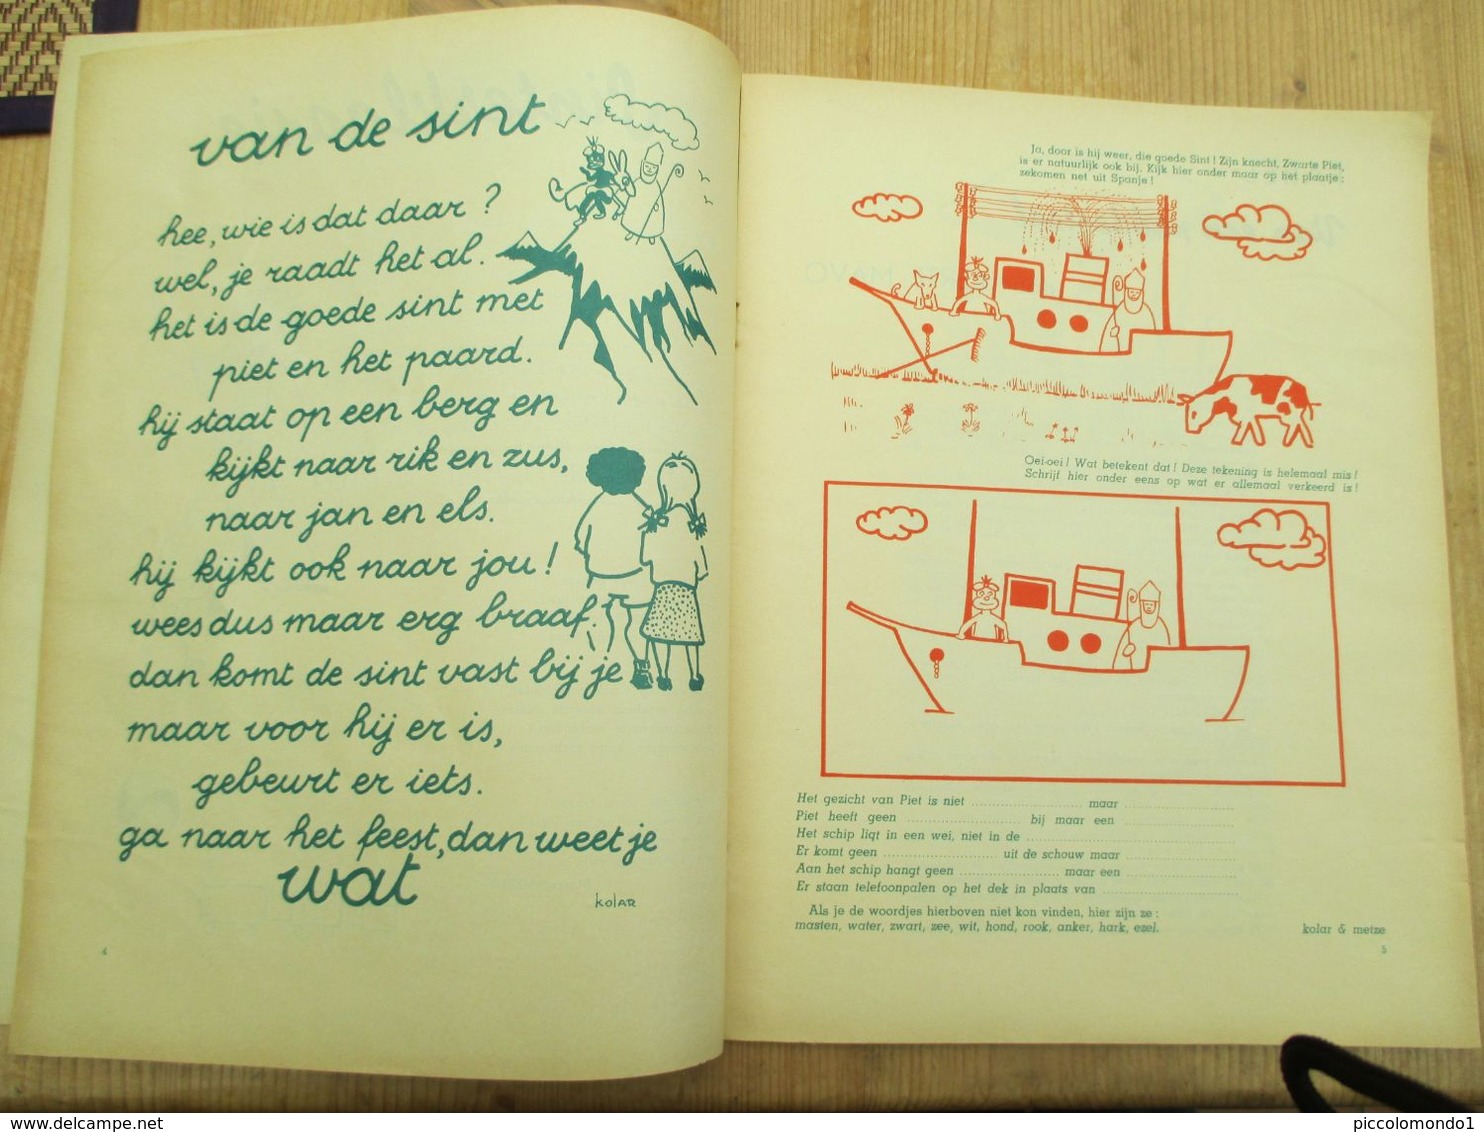 van de sint
hee, wie is dat daar ?
wel, je raadt het al.
het is de goede sint met
piet en het paard.
hij staat op een berg en
kijkt naar rik en zus,
naar jan en els.
hij kijkt ook naar jou !
wees dus maar erg braaf.
dan komt de sint vast bij je
maar voor hij er is,
gebeurt er iets.
ga naar het feest, dan weet je
wat
kolar
4
Ja, door is hij weer, die goede Sint ! Zijn knecht, Zwarte Piet,
is er natuurlijk ook bij. Kijk hier onder maar op het plaatje :
zekomen net uit Spanje !
Oei-oei ! Wat betekent dat ! Deze tekening is helemaal mis !
Schrijf hier onder eens op wat er allemaal verkeerd is !
Het gezicht van Piet is niet .......................... maar ..........................
Piet heeft geen .......................... bij maar een ..........................
Het schip ligt in een wei, niet in de ..........................
Er komt geen .......................... uit de schouw maar ..........................
Aan het schip hangt geen .......................... maar een ..........................
Er staan telefoonpalen op het dek in plaats van ..........................
Als je de woordjes hierboven niet kon vinden, hier zijn ze :
masten, water, zwart, zee, wit, hond, rook, anker, hark, ezel.
kolar & metze
5
delcampe.net
piccolomondo1